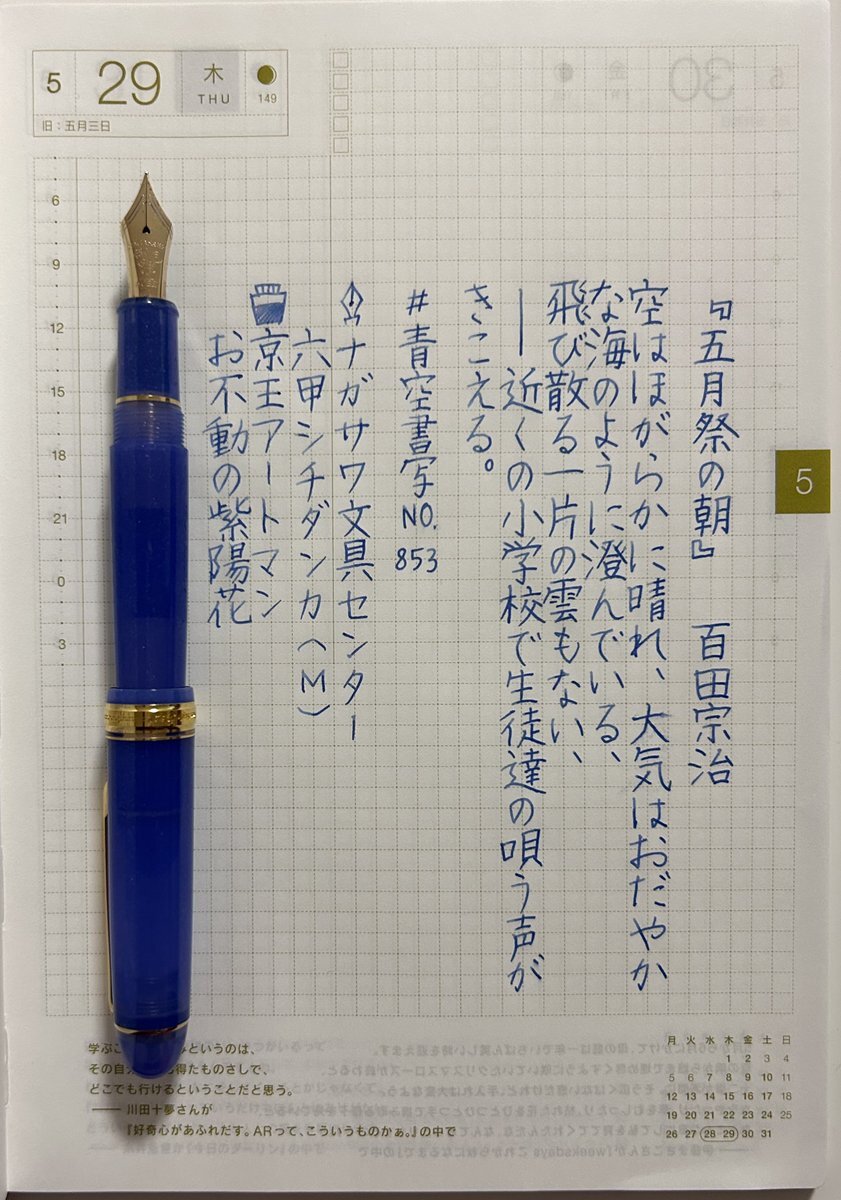 5
29
木
THU
149
旧：五月三日
『五月祭の朝』 百田宗治
空はほがらかに晴れ、大気はおだやか
な海のように澄んでいる、
飛び散る一片の雲もない、
――近くの小学校で生徒達の唄う声が
きこえる。
#青空書写NO.
853
ナガサワ文具センター
六甲シチダンカ(M)
京王アートマン
お不動の紫陽花
6
9
12
15
18
21
0
3
5
学ぶこ
というのは、
その自
得たものさしで、
どこでも行けるということだと思う。
―― 川田十夢さんが
『好奇心があふれだす。ARって、こういうものかぁ。』の中で
月 火 水 木 金 土 日
1 2 3 4
5 6 7 8 9 10 11
12 13 14 15 16 17 18
19 20 21 22 23 24 25
26 27 28 29 30 31